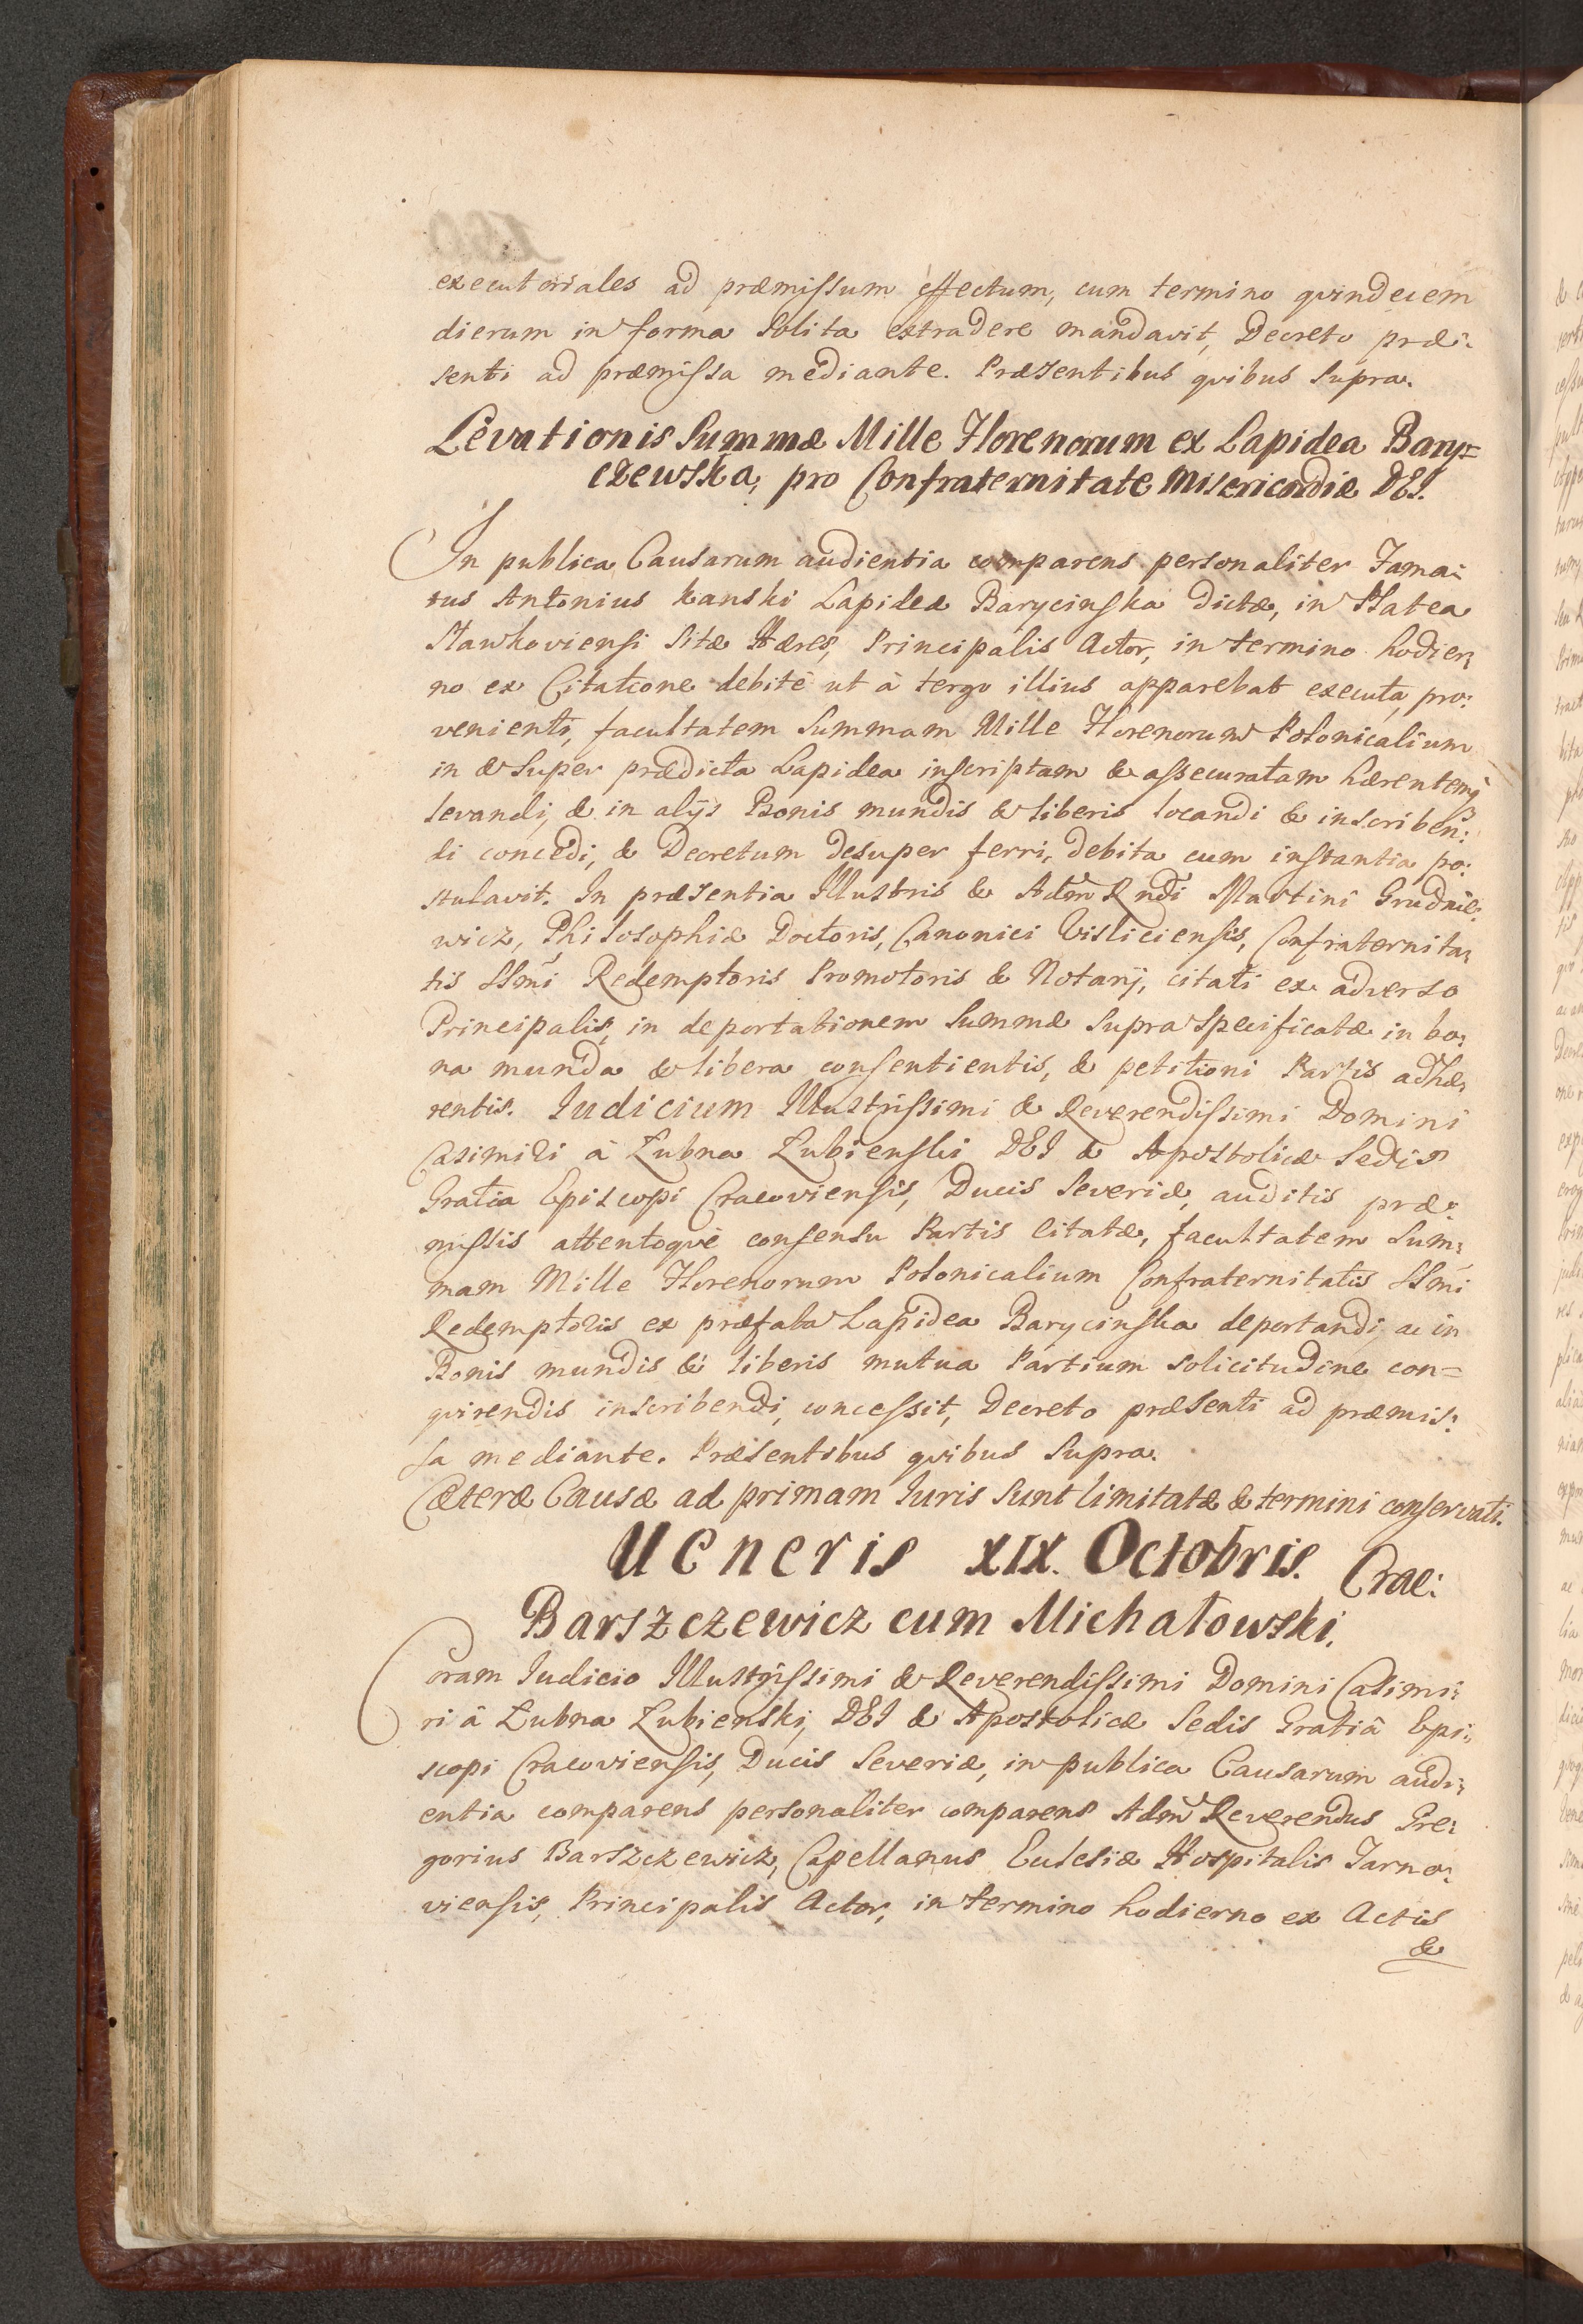 executoriales ad præmissum effectum, cum termino qvindecem
dierum in forma solita extradere mandavit, Decreto præ:
senti ad præmissa mediante. Præsentibus qvibus supra.
Levationis Summæ Mille Florenorum ex Lapidea Bary=
czewska, pro Confraternitate Misericordiæ DEI.
In publica Causarum audientia comparens personaliter Fama:
tus Antonius Kanski Lapideæ Barycinska dictæ, in Platea
Slawkoviensi sitæ Hæres, Principalis Actor, in termino hodier:
no ex Citatione debitè ut à tergo illius apparebat executa, pro:
venienti, facultatem Summam Mille Florenorum Polonicalium
in & super prædicta Lapidea inscriptam & assecuratam hærentemq3
levandi, & in alijs Bonis mundis & liberis locandi & inscriben:
di concedi, & Decretum desuper ferri, debita cum instantia po:
stulavit. In præsentia Illustris & Adm Rndi Martini Grudnie:
wicz, Philosophiæ Doctoris, Canonici Visliciensis, Confraternita:
tis SSmi Redemptoris Promotoris & Notarij, citati ex adverso
Principalis, in deportationem Summæ supra specificatæ in bo:
na munda & libera consentientis, & petitioni Partis adhæ:
rentis. Iudicium Illustrissimi & Reverendissimi Domini
Casimiri à Łubna Łubienski DEI & Apostolicæ Sedis
Gratia Episcopi Cracoviensis, Ducis Severiæ, auditis præ:
missis attentoqve consensu Partis citatæ, facultatem Sum:
mam Mille Florenorum Polonicalium Confraternitatis SSmi
Redemptoris ex præfata Lapidea Barycinska deportandi, ac in
Bonis mundis & liberis mutua Partium solicitudine con=
qvirendis inscribendi, concessit, Decreto præsenti ad præmis:
sa mediante. Præsentibus qvibus supra.
Cæteræ Causæ ad primam Iuris sunt limitatæ & termini conservati.
Veneris XIX. Octobris. Crac:
Barszczewicz cum Michałowski.
Coram Iudicio Illustrissimi & Reverendissimi Domini Casimi:
ri â Łubna Łubienski, DEI & Apostolicæ Sedis Gratiâ Epi:
scopi Cracoviensis, Ducis Severiæ, in publica Causarum audi:
entia comparens personaliter comparens Adm Reverendus Gre:
gorius Barszczewicz, Capellanus Ecclesiæ Hospitalis Tarno:
viensis, Principalis Actor, in termino hodierno ex Actis
&